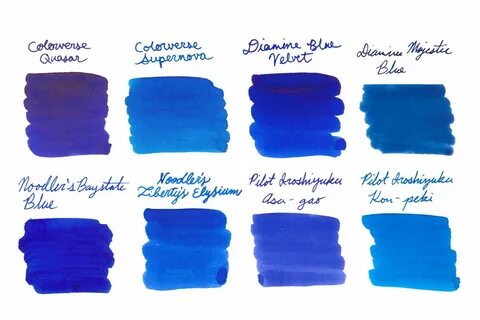 Colorverse
Quasar
Colorverse
Supernova
Diamine Blue
Velvet
Diamine Majestic
Blue
Noodler's Baystate
Blue
Noodler's
Liberty's Elysium
Pilot Iroshizuku
Asa-gao
Pilot Iroshizuku
Kon-peki